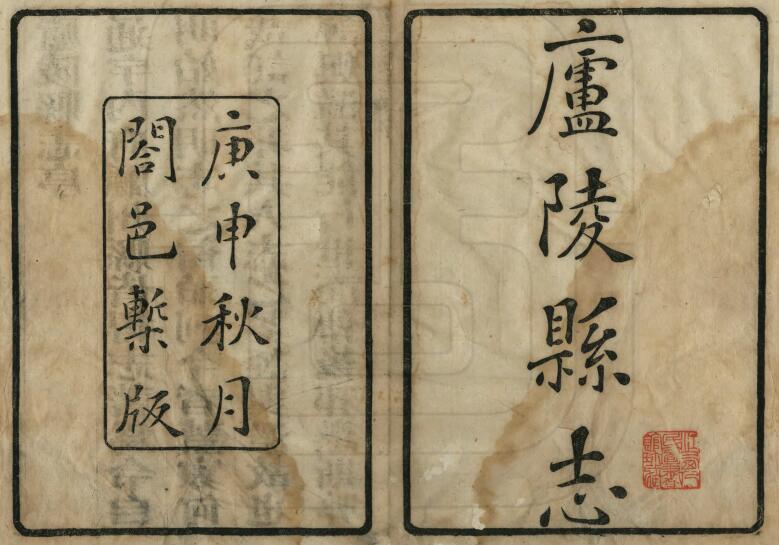 廬陵縣志
庚申秋月
閤邑槧版